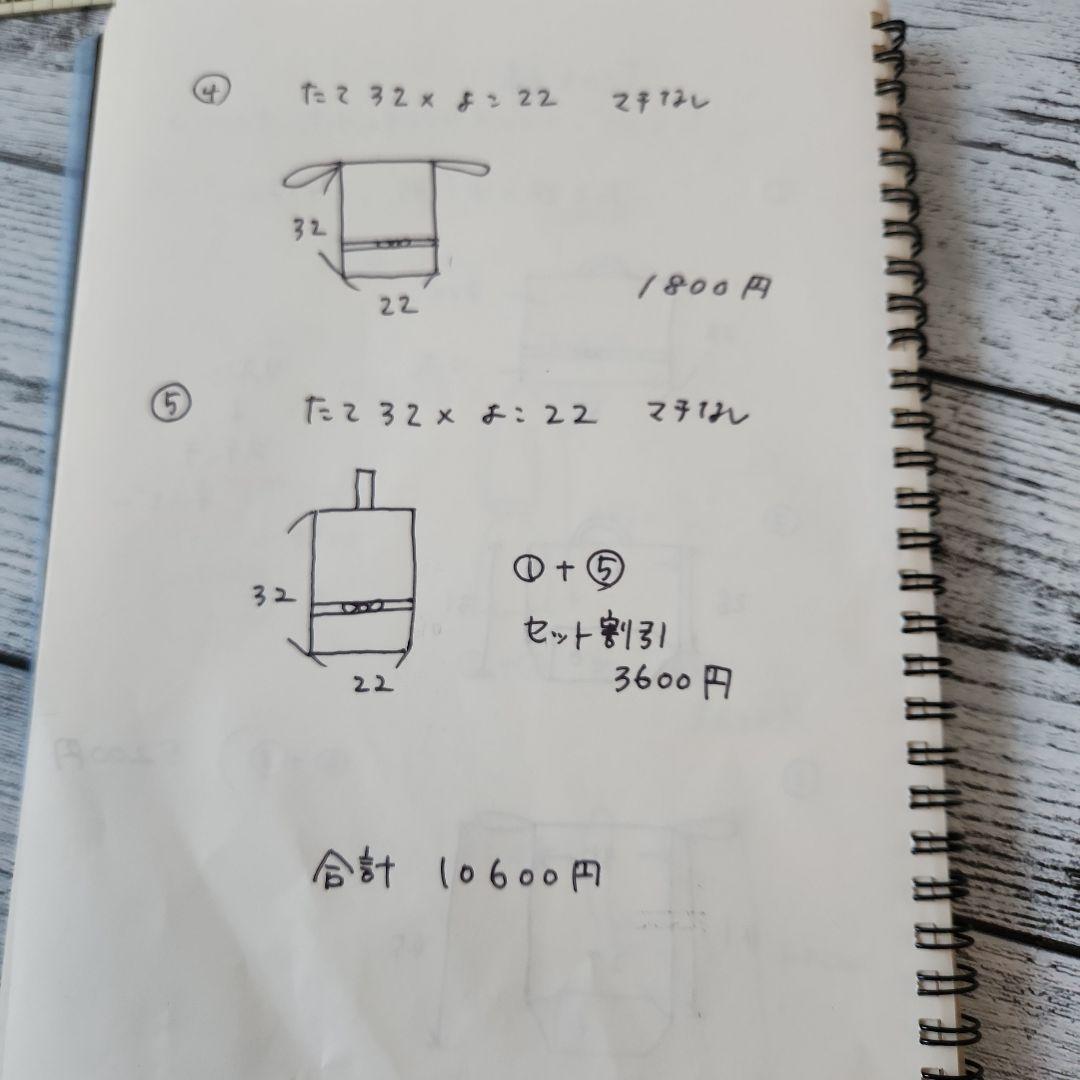 ④ たて32×よこ22 マチなし
32
22
1800円
⑤ たて32×よこ22 マチなし
32
22
①+⑤
セット割引
3600円
合計 10600円